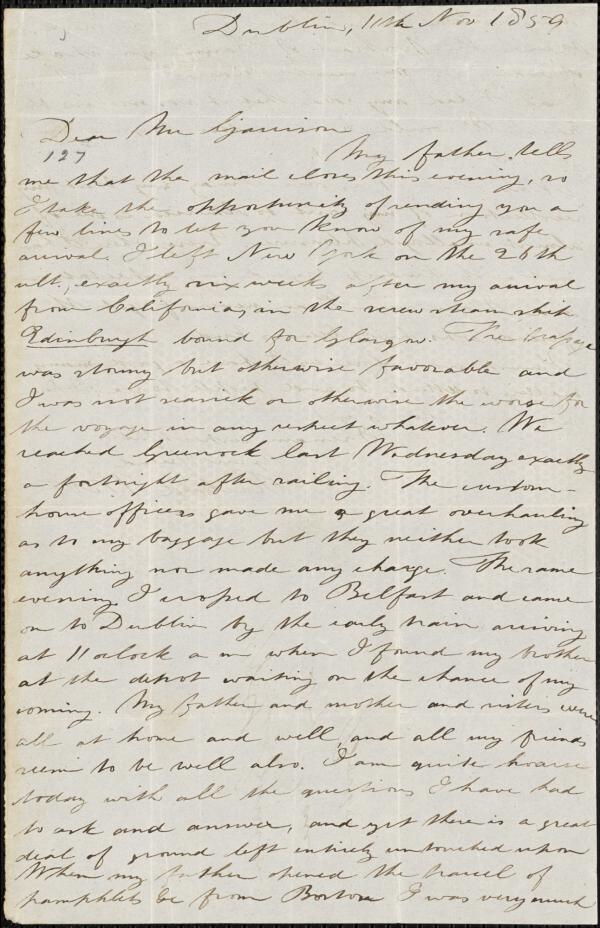 Dublin, 11th Nov 1859
Dear Mr Garrison
127
My father tells
me that the mail closes this evening, so
I take the opportunity of sending you a
few lines to let you know of my safe
arrival. I left New York on the 26th
ult., exactly six weeks after my arrival
from California, in the screw steam ship
Edinburgh bound for Glasgow. The passage
was stormy but otherwise favorable and
I was not seasick or otherwise the worse for
the voyage in any respect whatever. We
reached Greenock last Wednesday exactly
a fortnight after sailing. The custom-
house officers gave me a great overhauling
as to my baggage but they neither took
anything nor made any charge. The same
evening I crossed to Belfast and came
on to Dublin by the early train arriving
at 11 oclock a m when I found my brother
at the depot waiting on the chance of my
coming. My father and mother and sisters were
all at home and well and all my friends
seem to be well also. I am quite hoarse
today with all the questions I have had
to ask and answer, and yet there is a great
deal of ground left entirely untouched upon
When my father opened the parcel of
pamphlets &c from Boston I was very much